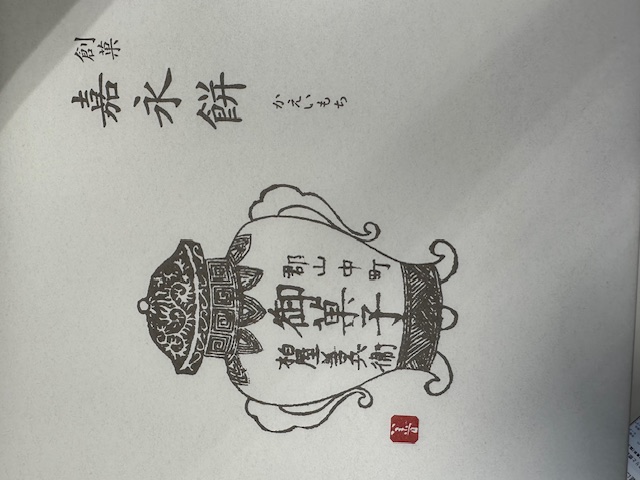 創菓
嘉永餅
かえいもち
郡山中町
御菓子
柏屋善兵衛